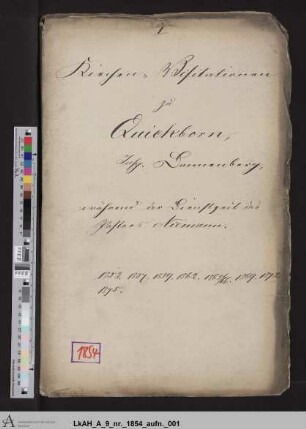 Kirchen-Visitationen
zu
Quickborn,
Insp. Dannenberg,
während der Dienstzeit des
Pastors Niemann.
1853. 1857. 1859. 1862. 1869. 1872
1875.
1854
LkAH_A_9_nr._1854_aufn._001